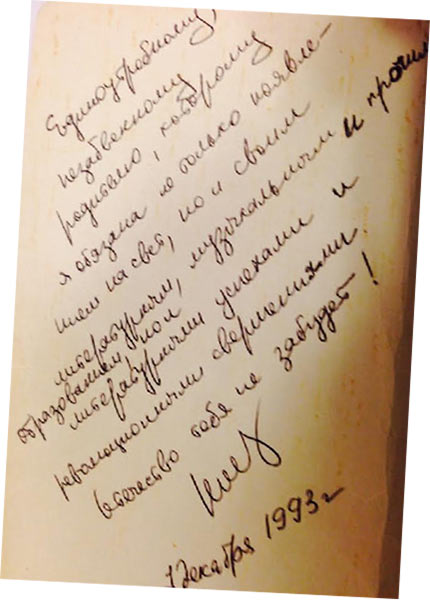 Единоутробному,
незабвенному
родителю, которому
я обязана не только появле-
нием на свет, но и своим
литературным, музыкальным и прочим
образованием,
литературными успехами и
революционными свершениями.
Отечество тебя не забудет!
1 декабря 1993 г